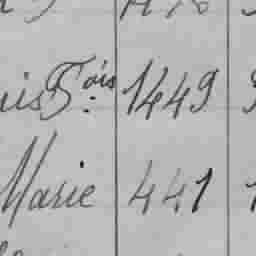 uis Fois 1449
Marie 441